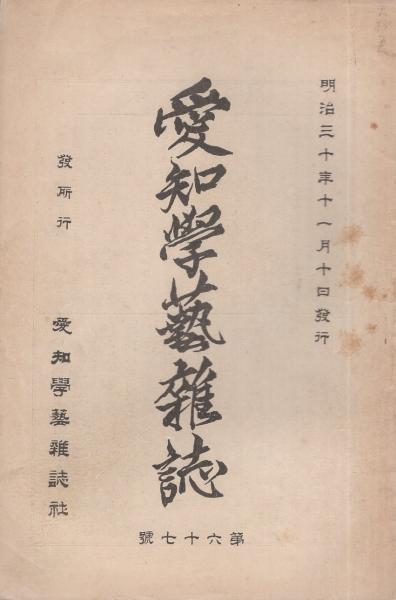 明治三十年十一月十日發行
愛知學藝雜誌
第六十七號
發所行
愛知學藝雜誌社